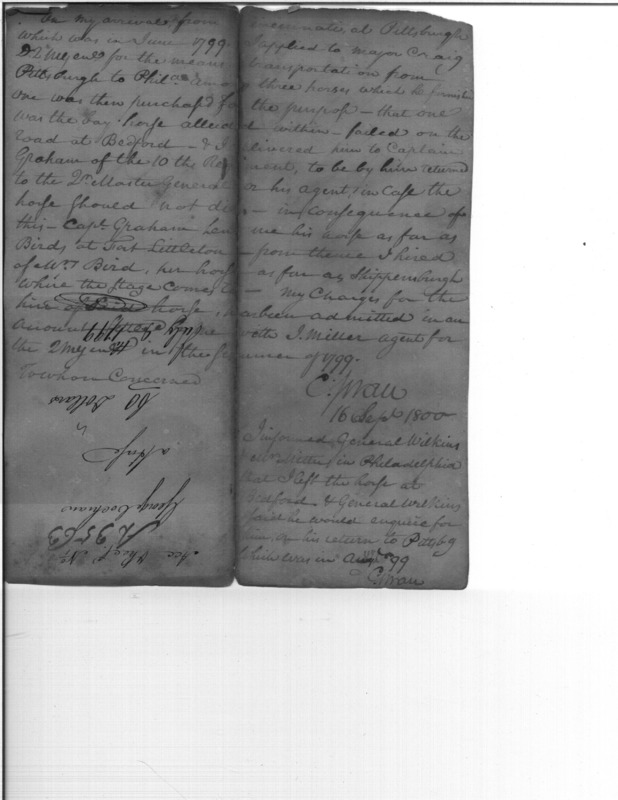 On my arrival from Cincinnati at Pittsburgh
which was in June 1799. I applied to Major Craig
D Qr Mr Genl for the means transportation from
Pittsburgh to Phila. Among three horses which he furnish
one was then purchas'd for the purpose – that one
was the bay horse alluded within – failed on the
road at Bedford – & I delivered him to Captain
Graham of the 10th Regiment, to be by him returned
to the Qr Master General or his agent, in Case the
horse should not die – in Consequence of
this – Capt. Graham lent me his horse as far as
Birds at Fort Littleton – from thence I hired
of Mrs Bird, her horse as far as Shippensburgh
where the Stage comes to – My Charges for the
hire of Said horse, has been admitted in an
account July 1799 with I. Miller agent for
the Q Mr Genl in the Summer of 1799.
To whom Concerned
C. Swan
16 Sept 1800
I informed General Wilkins
in Philadelphia
that I left the horse at
Bedford & General Wilkins
said he would enquire for
him on his return to Pittsbg
which was in Augt. 99
C. Swan
60 Dollars
a horse
George Cochran
3563